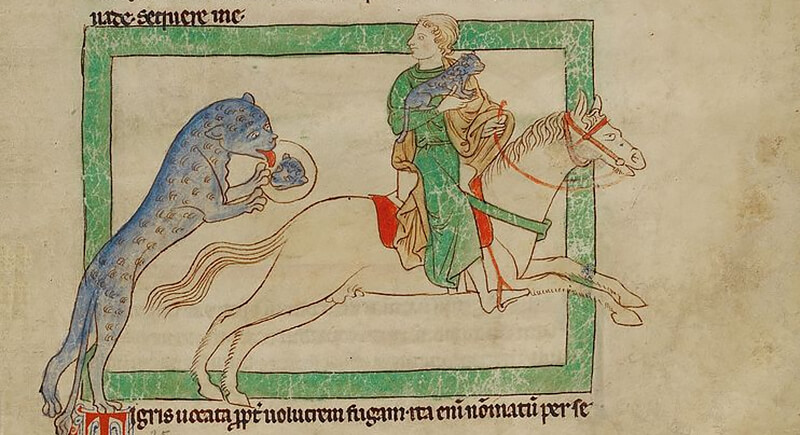 uade· sequere me·
Tigris uocata ꝓpt̄ uolucrem fugam· ita eni᷑ no᷑inatu᷑ per se